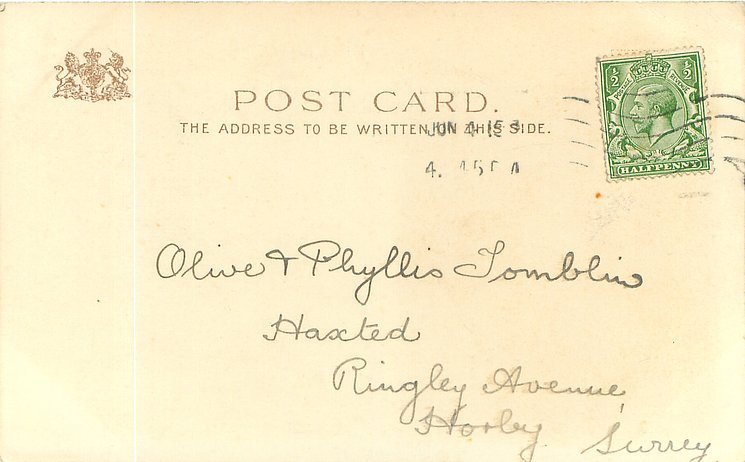 POST CARD.
THE ADDRESS TO BE WRITTEN ON THIS SIDE.
JUN 4 15
4.45 P
½ ½
POSTAGE REVENUE
HALFPENNY
Olive & Phyllis Tomblin
Haxted
Ringley Avenue,
Horley
Surrey